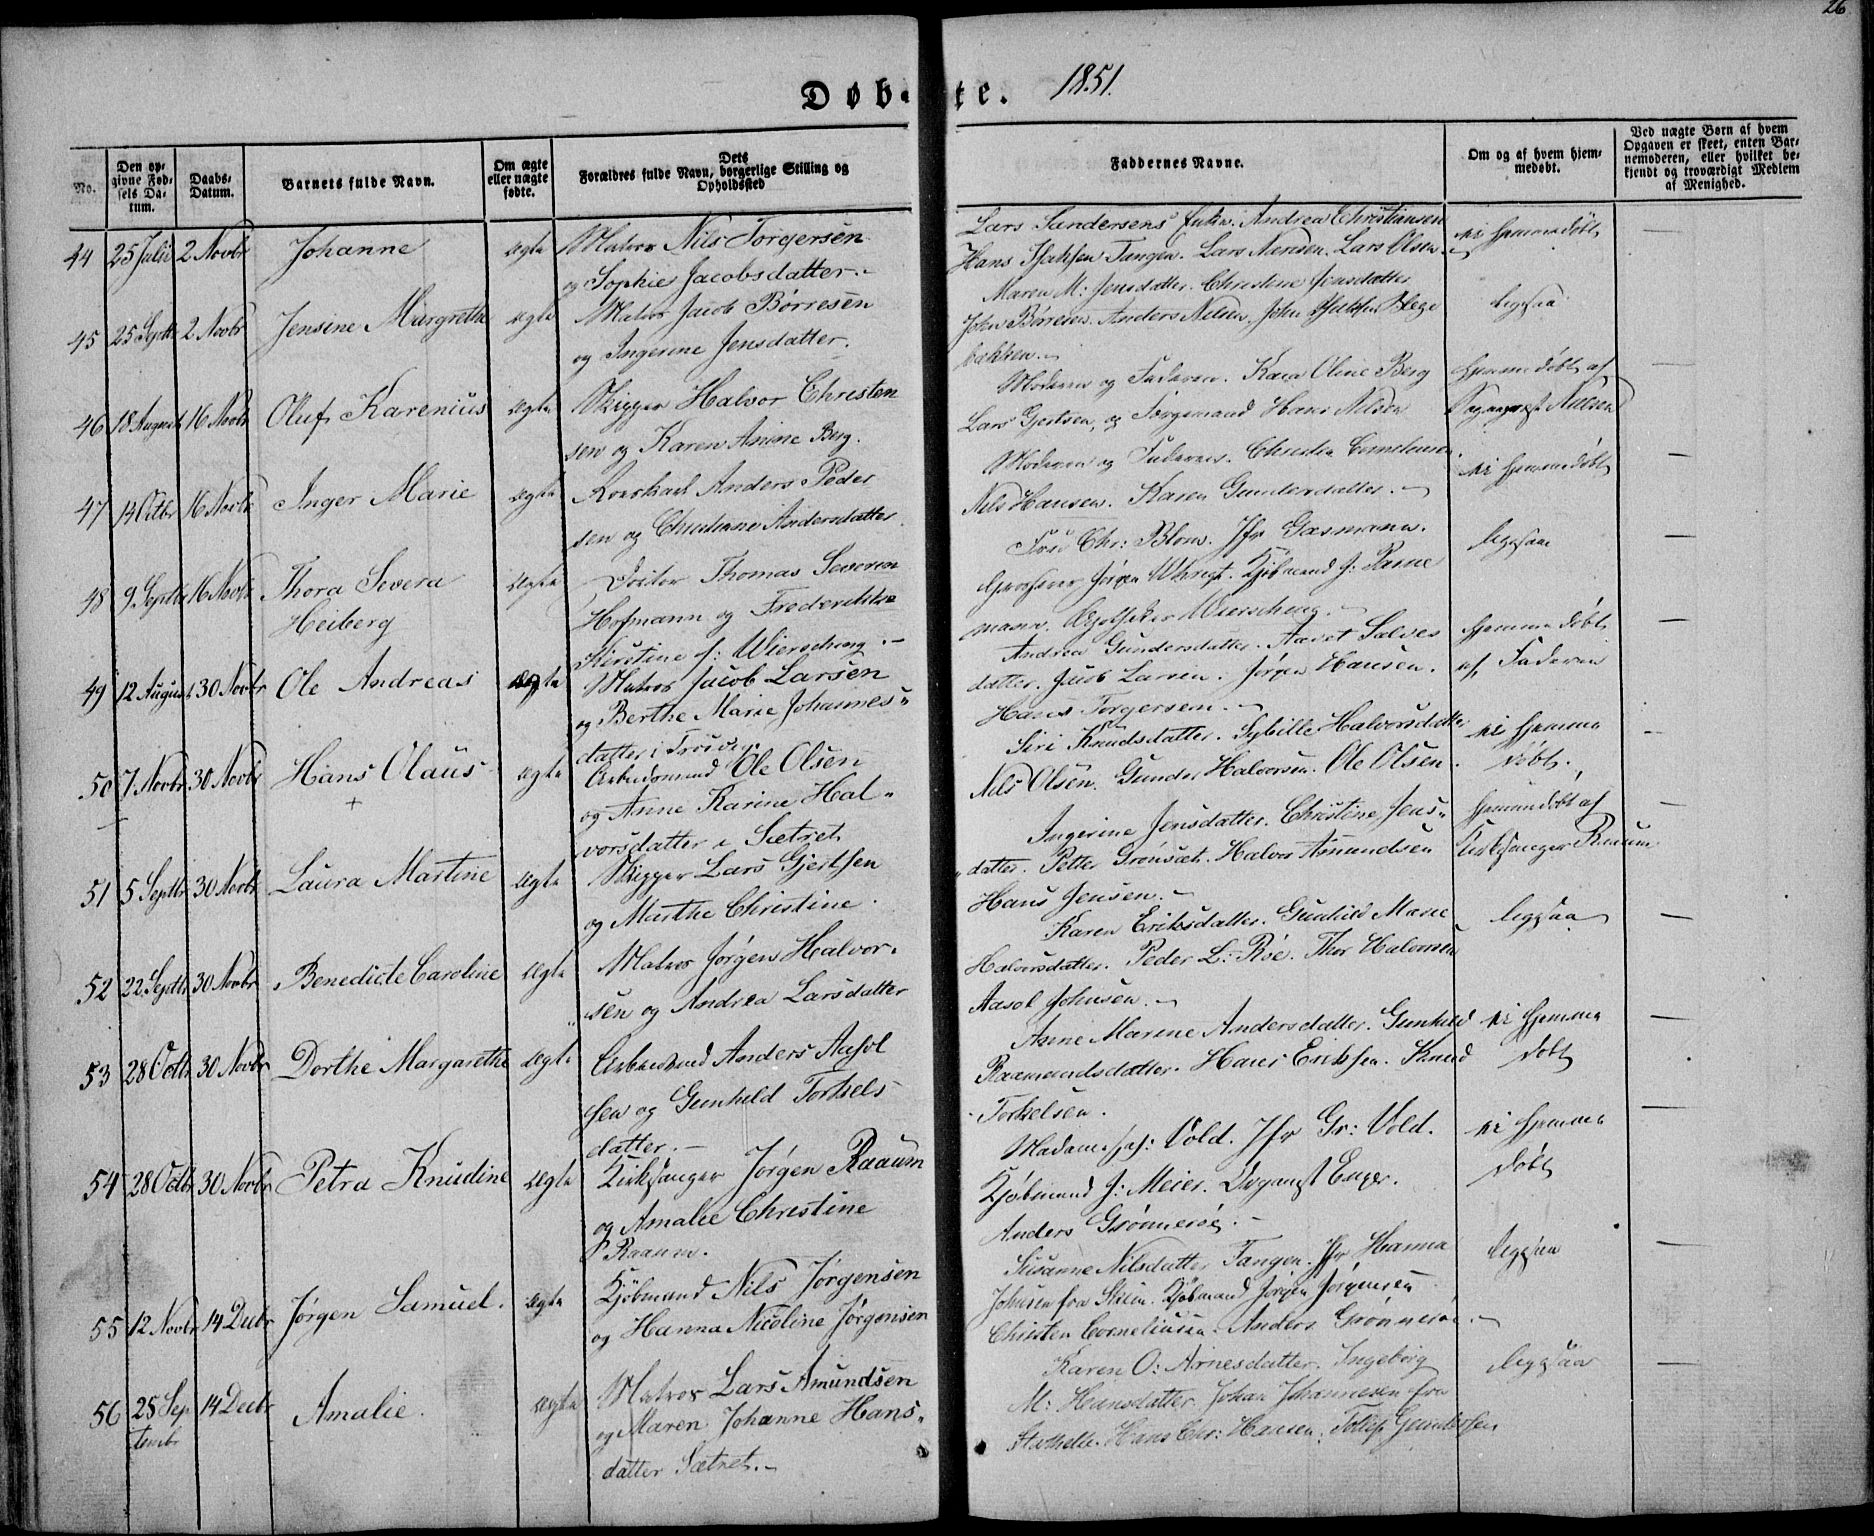 26
Døb-
te.
1851.
No.
Den op-
givne Fød-
sels Da-
tum.
Daabs-
Datum.
Barnets fulde Navn.
Om ægte
eller uægte
fødte.
Dets
Forældres fulde Navn, borgerlige Stilling og
Opholdssted
Faddernes Navne.
Om og af hvem hjem-
medøbt.
Ved uægte Børn af hvem
Opgaven er skeet, enten Bar-
nemoderen, eller hvilket be-
kjendt og troværdigt Medlem
af Menighed.
44 25 Julii 2 Novbr Johanne ægte Matros Nils Torgersen
og Sophie Jacobsdatter.-
Lars Sandersens Enke. Andrea Christiansen
Hans Isaksen Tangen. Lars Nersen. Lars Olsen
Maren M: Jensdatter. Christine Jensdatter
ei hjemmedøbt
45 25 Septbr 2 Novbr Jensine Margrethe ægte Matros Jacob Børresen
og Ingerine Jensdatter.
John Børresen. Anders Nilsen, John
bakken.-
ligesaa
46 18 August 16 Novbr Oluf Karenius ægte Skipper Halvor Christen
sen og Karen Anine Berg.
Moderen og Faderen. Karen Oline Berg
Lars Gjertsen, og Sørgemand Hans Nilsen
hjemmedøbt af
Nielsen
47 14 Octbr 16 Novbr Inger Marie ægte Anders Peder
sen og Christianne Andersdatter.
Moderen og Faderen. Christen Corneliusen.
Nils Hansen. Karen Gundersdatter.-
ei hjemmedøbt
48 9 Septbr 16 Novbr Thora Severa
Heiberg
ægte Doctor Thomas Severin
Hofmann og Frederikke
Kirstine f: Wiersching.-
Fru Chr: Blom. Jfr Gasmann.
Jørgen Wright. Kjøbmand J: Parne
mann. Apotheker Wiersching.-
ligesaa
49 12 August 30 Novbr Ole Andreas ægte Matros Jacob Larsen
og Berthe Marie Johannes-
datter i Trosvig.
Andrea Gundersdatter. Aaret Salves
datter. Jacob Larsen. Jørgen Hansen.
Hans Torgersen.-
hjemmedøbt
af Faderen
50 7 Novbr 30 Novbr Hans Olaus
+
ægte Arbeidsmand Ole Olsen
og Anne Karine Hal-
vorsdatter i Sætret
Siri Knudsdatter. Sybille Halvorsdatter
Nils Olsen. Gunder Halvorsen. Ole Olsen.
ei hjemme
døbt.
51 5 Septbr 30 Novbr Laura Martine ægte Skipper Lars Gjertsen
og Marthe Christine.
Ingerine Jensdatter. Christine Jens-
datter. Petter Grønsæt. Halvor Amundsen
Hans Jensen.-
hjemmedøbt af
Kirksanger Raaum
52 22 Septbr 30 Novbr Benedicte Caroline ægte Matros Jørgen Halvor-
sen og Andrea Larsdatter
Karen Eriksdatter. Gunhild Marie
Halvorsdatter. Peder L: Røe. Thor Halvorsen
Aasol Johnsen.-
ligesaa
53 28 Octbr 30 Novbr Dorthe Margarethe ægte Arbeidsmand Anders Aasol
sen og Gunhild Torkels-
datter.-
Anne Marine Andersdatter. Gunhild
Raamundsdatter. Hans Eriksen. Knud
Torkelsen.
ei hjemme
døbt
54 28 Octbr 30 Novbr Petra Knudine ægte Kirksanger Jørgen Raaum
og Amalie Christine
Raaum.
Madame Vold. Jfr Gr: Vold.
Kjøbmand J: Meier. Organist Enger.
Anders Grønnerøe.-
ei hjemme
døbt
55 12 Novbr 14 Decbr Jørgen Samuel. ægte Kjøbmand Nils Jørgensen
og Hanna Nicoline Jørgensen
Susanne Nilsdatter Tangen. Jfr Hanna
Johnsen fra Skien. Kjøbmand Jørgen Jørgensen
Christen Corneliusen. Anders Grønnerøe.-
ligesaa
56 25 Sep
tembr
14 Decbr Amalie. ægte Matros Lars Amundsen
og Maren Johanne Hans-
datter Sætret.-
Karen O: Arnesdatter. Ingeborg
M: Hansdatter. Johan Johannesen fra
Stathelle. Hans Chr: Hansen. Tollef Gundersen
ligesaa